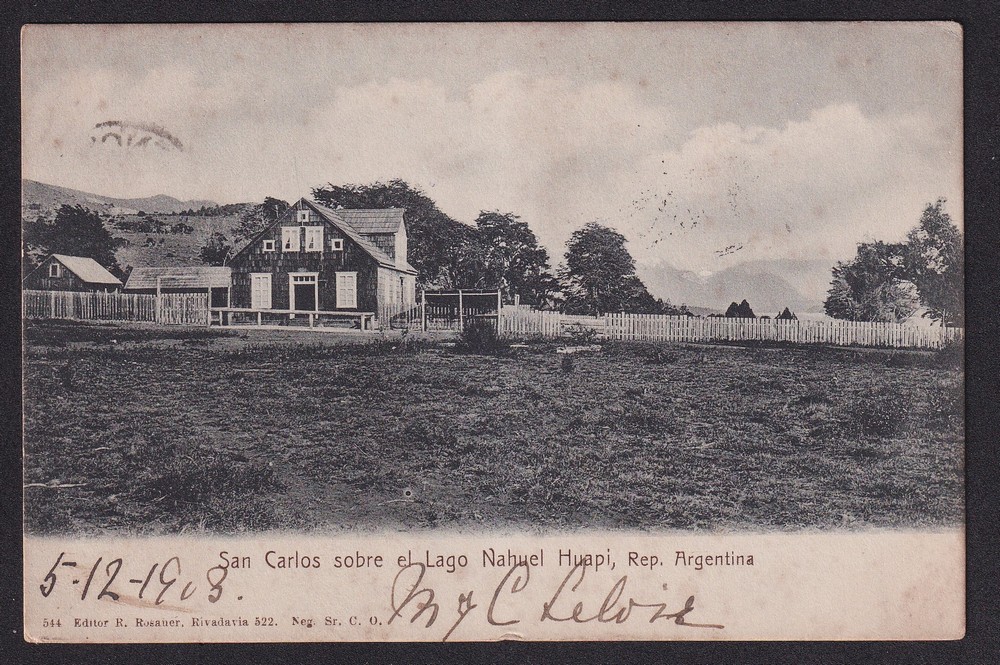 San Carlos sobre el Lago Nahuel Huapi, Rep. Argentina
5-12-1903.
544 Editor R. Rosauer, Rivadavia 522. Neg. Sr. C. O.